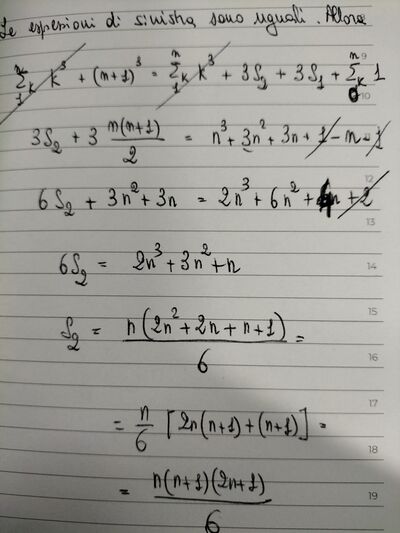 Le espressioni di sinistra sono uguali. Allora
n∑1 k k³ + (n+1)³ = n∑1 k k³ + 3S₂ + 3S₁ + n∑0 k 1
3S₂ + 3 n(n+1)/2 = n³ + 3n² + 3n + 1 - n - 1
6S₂ + 3n² + 3n = 2n³ + 6n² + 4n + 2
6S₂ = 2n³ + 3n² + n
S₂ = n(2n² + 2n + n + 1)/6 =
= n/6 [2n(n+1) + (n+1)] =
= n(n+1)(2n+1)/6
9
10
12
13
14
15
16
17
18
19